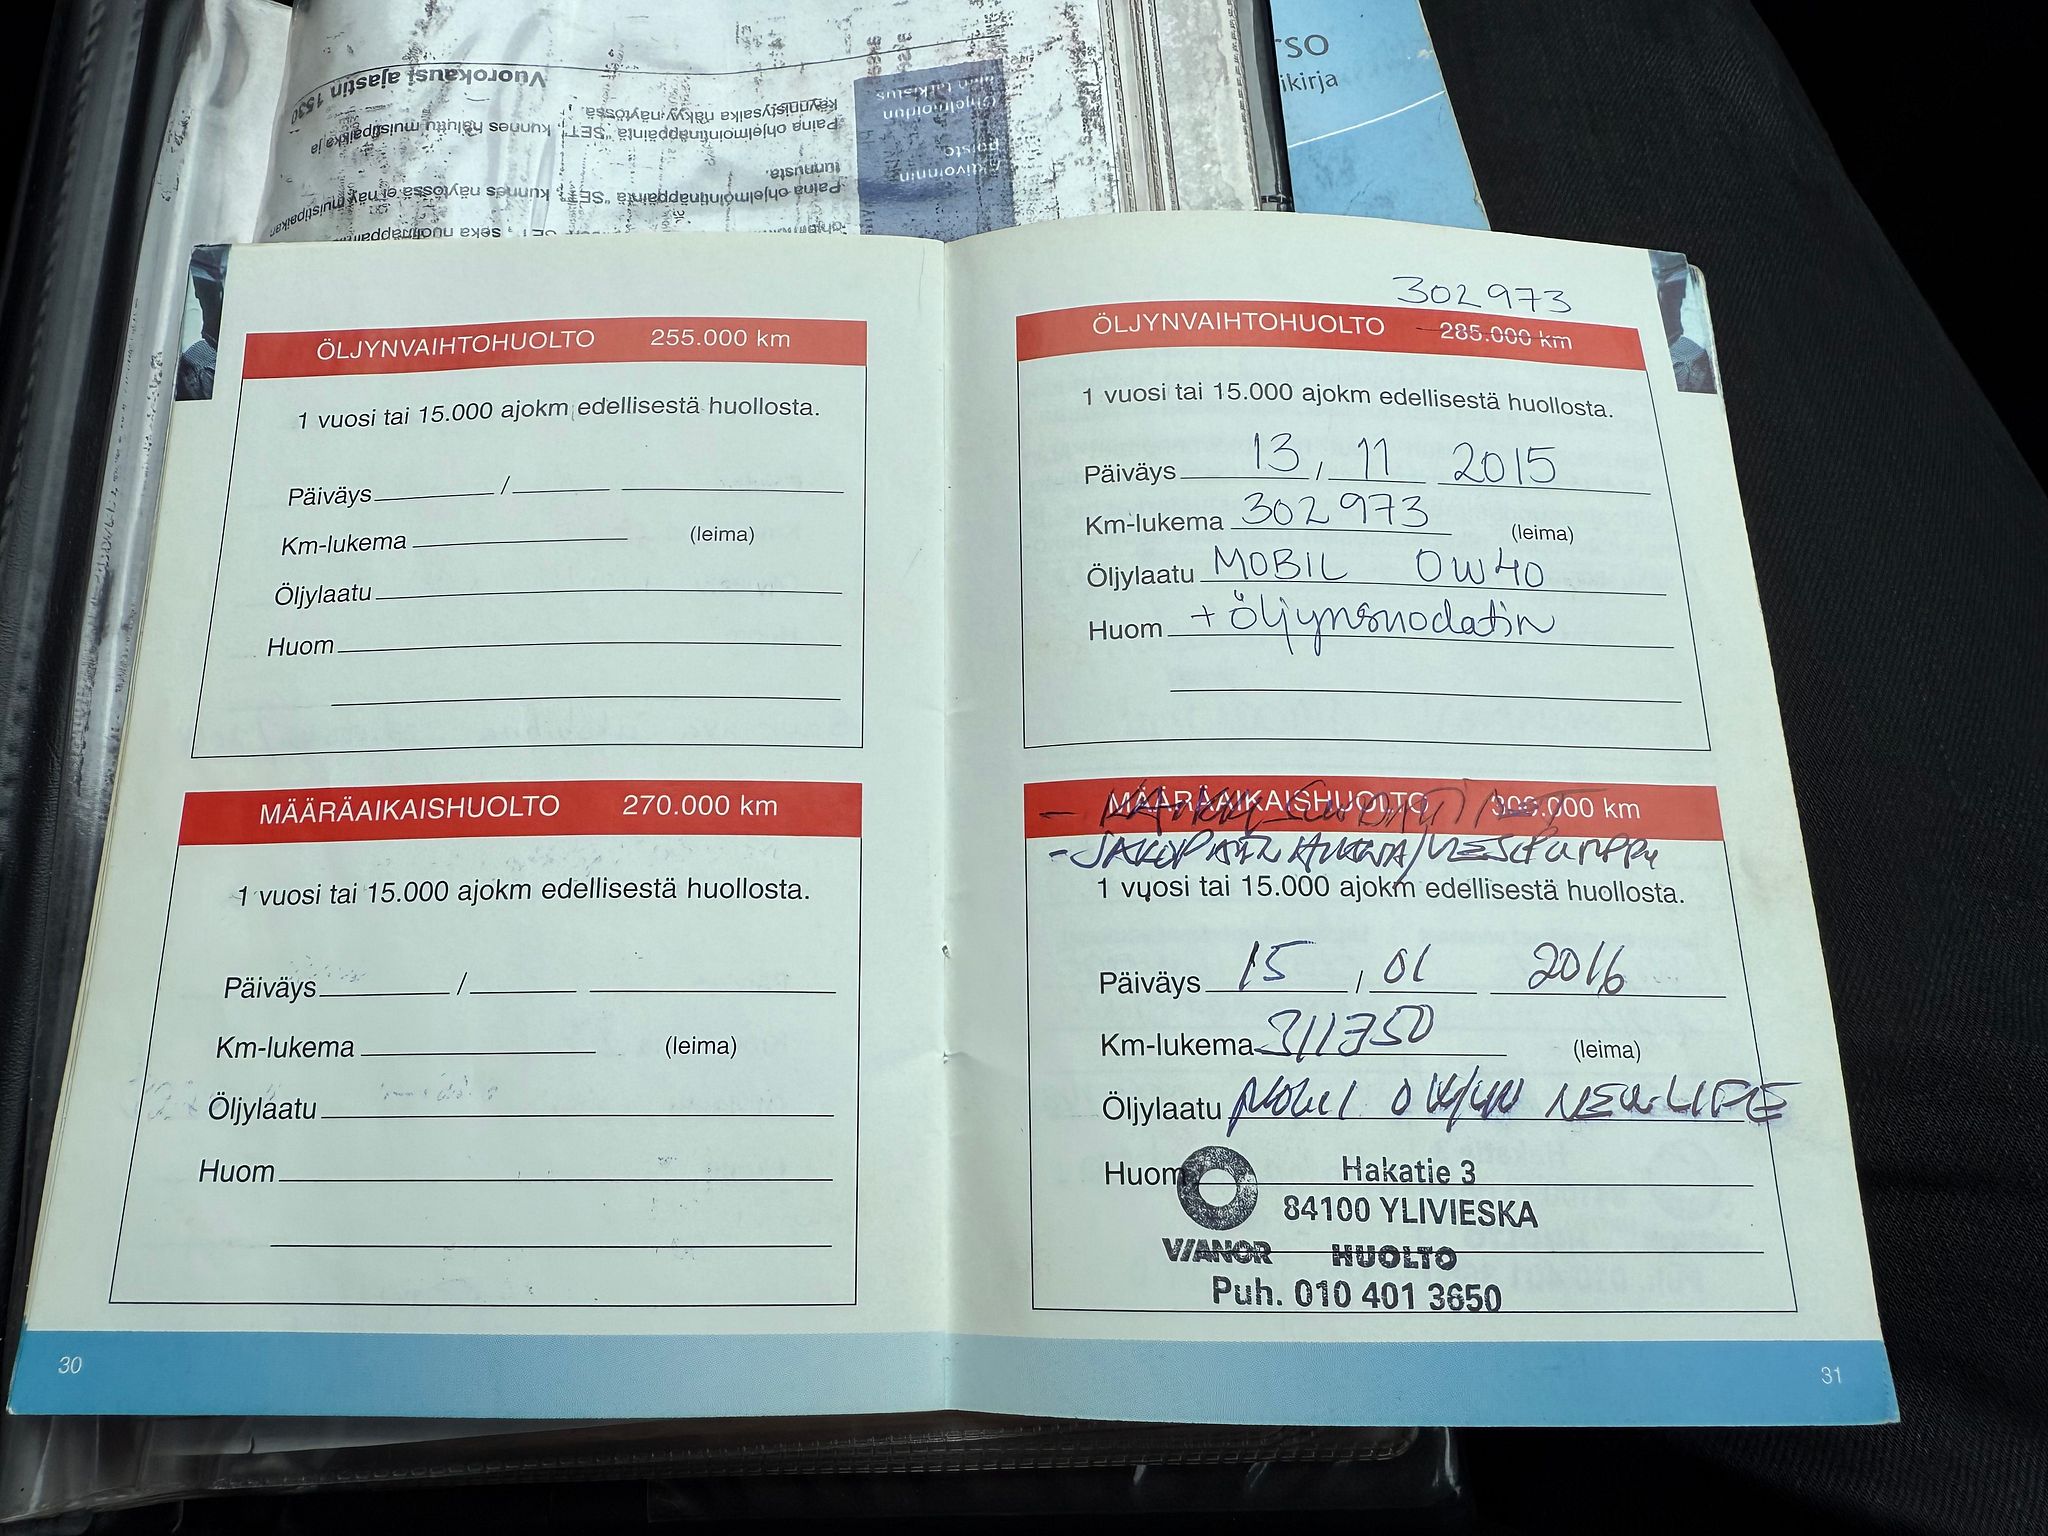 rso
ikirja
Vuorokausi ajastin 1530
Paina ohjelmointinäppäintä "SET", kunnes haluttu muistipaikka ja
käynnistysaika näkyy näytössä.
Ohjelmoidun
ajan tarkistus
Paina ohjelmointinäppäintä "SET", kunnes näytössä ei näy muistipaikan
tunnusta.
Aktivoinnin
poisto
ÖLJYNVAIHTOHUOLTO 255.000 km
1 vuosi tai 15.000 ajokm edellisestä huollosta.
Päiväys / 
Km-lukema (leima)
Öljylaatu
Huom
MÄÄRÄAIKAISHUOLTO 270.000 km
1 vuosi tai 15.000 ajokm edellisestä huollosta.
Päiväys / 
Km-lukema (leima)
Öljylaatu
Huom
30
302973
ÖLJYNVAIHTOHUOLTO 285.000 km
1 vuosi tai 15.000 ajokm edellisestä huollosta.
Päiväys 13 / 11 2015
Km-lukema 302973 (leima)
Öljylaatu MOBIL 0W40
Huom + Öljynsuodatin
MÄÄRÄAIKAISHUOLTO 300.000 km
- KAIKKI SUODATTIMET
- JAKOPÄÄN HIHNA/VESIPUMPPU
1 vuosi tai 15.000 ajokm edellisestä huollosta.
Päiväys 15 / 01 2016
Km-lukema 311750 (leima)
Öljylaatu MOBIL 0W/40 NEW-LIFE
Huom Hakatie 3
84100 YLIVIESKA
VIANOR HUOLTO
Puh. 010 401 3650
31